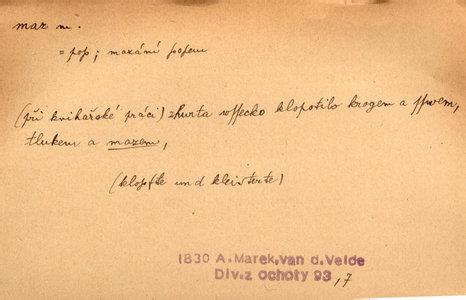 maz m.
= pop; mazání popem
(při knihařské práci) zhurta wssecko klopotilo krogem a sswem,
tlukem a mazem,
(klopfte und kleisterte)
1830 A. Marek, van d. Velde
Div. z ochoty 93,7